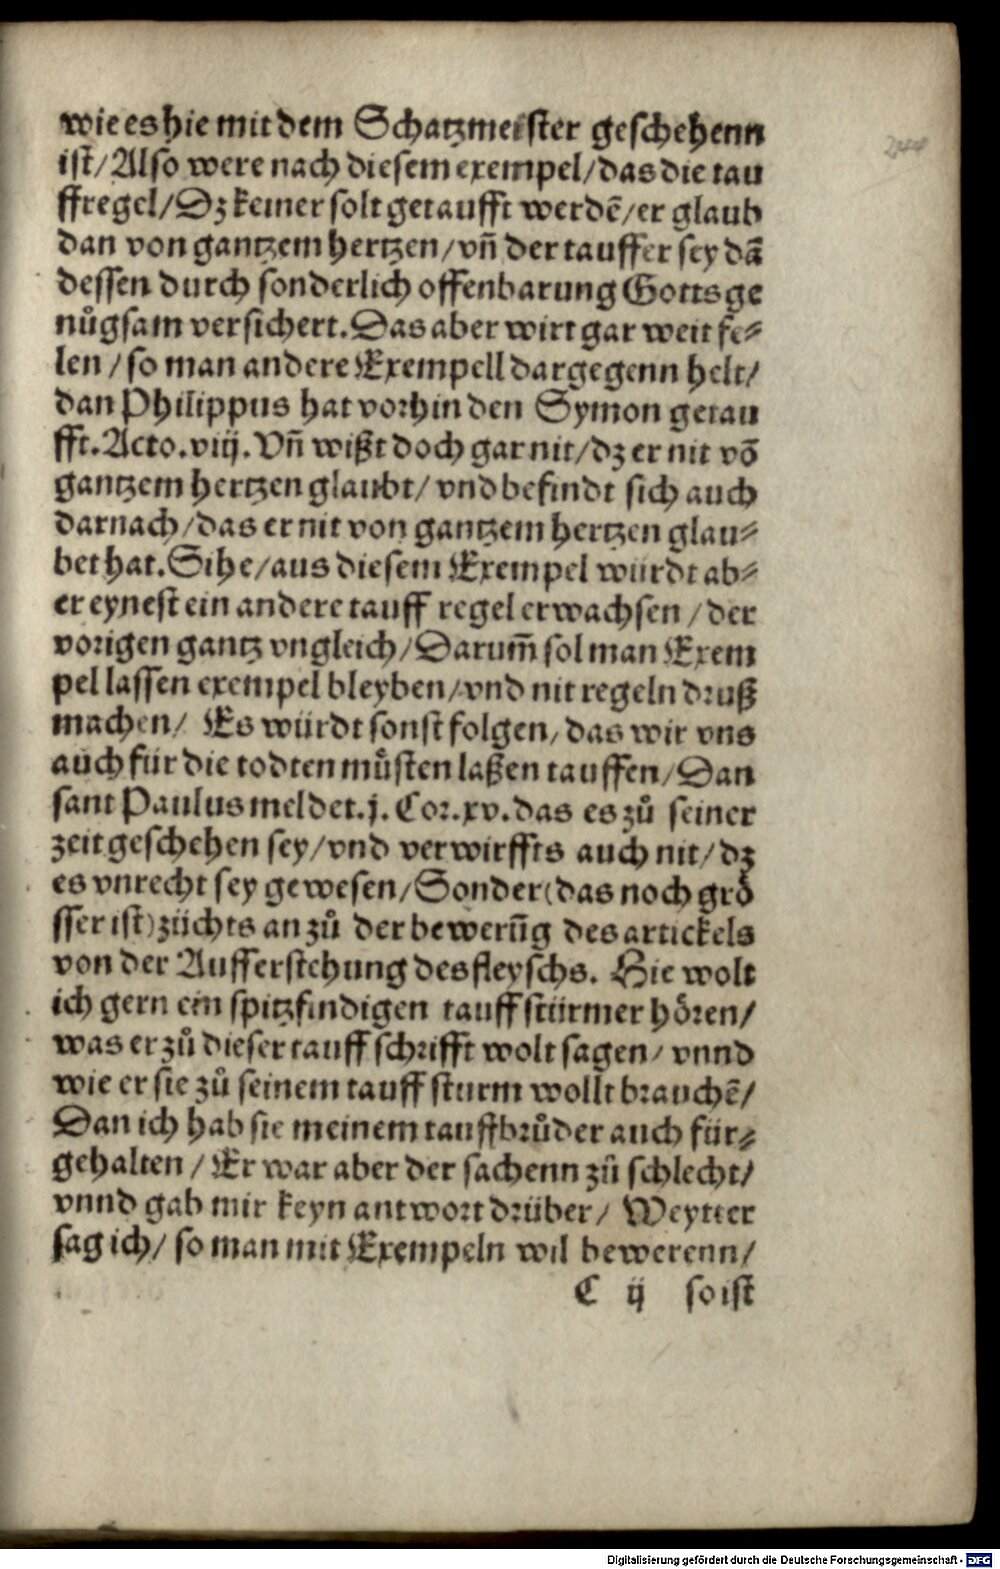 wie es hie mit dem Schatzmeister geschehenn
ist/ Also were nach diesem exempel/ das die tau
ffregel/ Dz keiner solt getaufft werdē/ er glaub
dan von gantzem hertzen/ vñ der tauffer sey dā
dessen durch sonderlich offenbarung Gotts ge
nůgsam versichert. Das aber wirt gar weit fe⸗
len / so man andere Exempell dargegenn helt/
dan Philippus hat vorhin den Symon getau
fft. Acto. viij. Vñ wißt doch gar nit/ dz er nit võ
gantzem hertzen glaubt/ vnd befindt sich auch
darnach/ das er nit von gantzem hertzen glau⸗
bet hat. Sihe/ aus diesem Exempel würdt ab⸗
er eynest ein andere tauff regel erwachsen / der
vorigen gantz vngleich/ Darum̄ sol man Exem
pel lassen exempel bleyben/ vnd nit regeln druß
machen/ Es würdt sonst folgen, das wir vns
auch für die todten můsten laßen tauffen/ Dan
sant Paulus meldet. j. Cor. xv. das es zů seiner
zeit geschehen sey/ vnd verwirffts auch nit/ dz
es vnrecht sey gewesen/ Sonder (das noch grö
sser ist) züchts an zů der bewerūg des artickels
von der Aufferstehung des fleyschs. Hie wolt
ich gern ein spitzfindigen tauff stürmer hören/
was er zů dieser tauff schrifft wolt sagen/ vnnd
wie er sie zů seinem tauff sturm wollt brauchē/
Dan ich hab sie meinem tauffbrůder auch für⸗
gehalten / Er war aber der sachenn zů schlecht/
vnnd gab mir keyn antwort drüber/ Weytter
sag ich/ so man mit Exempeln wil bewerenn/
C ij so ist
Digitalisierung gefördert durch die Deutsche Forschungsgemeinschaft - DFG